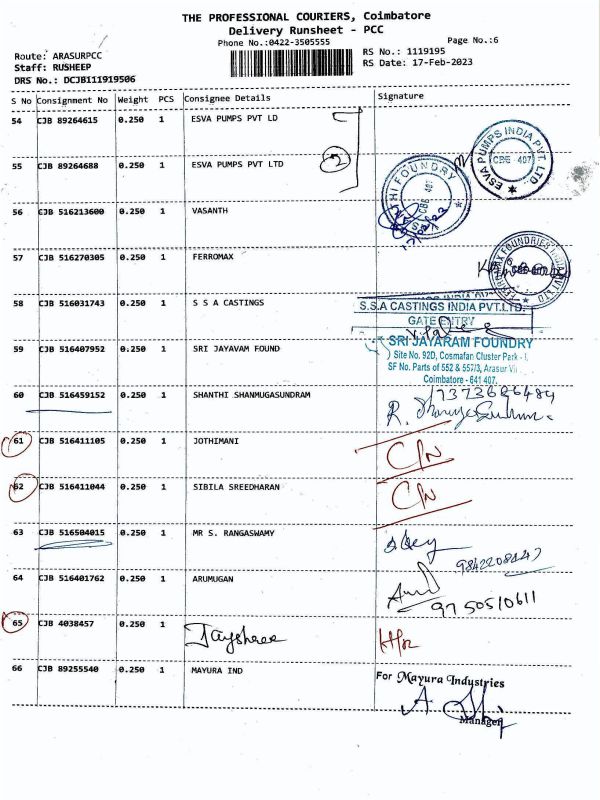 THE PROFESSIONAL COURIERS, Coimbatore
Delivery Runsheet - PCC
Phone No.:0422-3505555
Page No.:6
Route: ARASURPCC
RS No.: 1119195
Staff: RUSHEEP
RS Date: 17-Feb-2023
DRS No.: DCJB111919506
S No Consignment No Weight PCS Consignee Details Signature
54 CJB 89264615 0.250 1 ESVA PUMPS PVT LD
2
ESVA PUMPS INDIA PVT. LTD.
CBE - 407
55 CJB 89264688 0.250 1 ESVA PUMPS PVT LTD
56 CJB 516213600 0.250 1 VASANTH
57 CJB 516270305 0.250 1 FERROMAX
58 CJB 516031743 0.250 1 S S A CASTINGS
S.S.A CASTINGS INDIA PVT.LTD.
GATE ENTRY
59 CJB 516407952 0.250 1 SRI JAYAVAM FOUND
SRI JAYARAM FOUNDRY
Site No. 92D, Cosmafan Cluster Park -
SF No. Parts of 552 & 557/3, Arasur
Coimbatore - 641 407.
60 CJB 516459152 0.250 1 SHANTHI SHANMUGASUNDRAM
61 CJB 516411105 0.250 1 JOTHIMANI
C/N
62 CJB 516411044 0.250 1 SIBILA SREEDHARAN
C/N
63 CJB 516504015 0.250 1 MR S. RANGASWAMY
64 CJB 516401762 0.250 1 ARUMUGAN
9750510611
65 CJB 4038457 0.250 1 Jayshree
66 CJB 89255540 0.250 1 MAYURA IND
For Mayura Industries
Manager